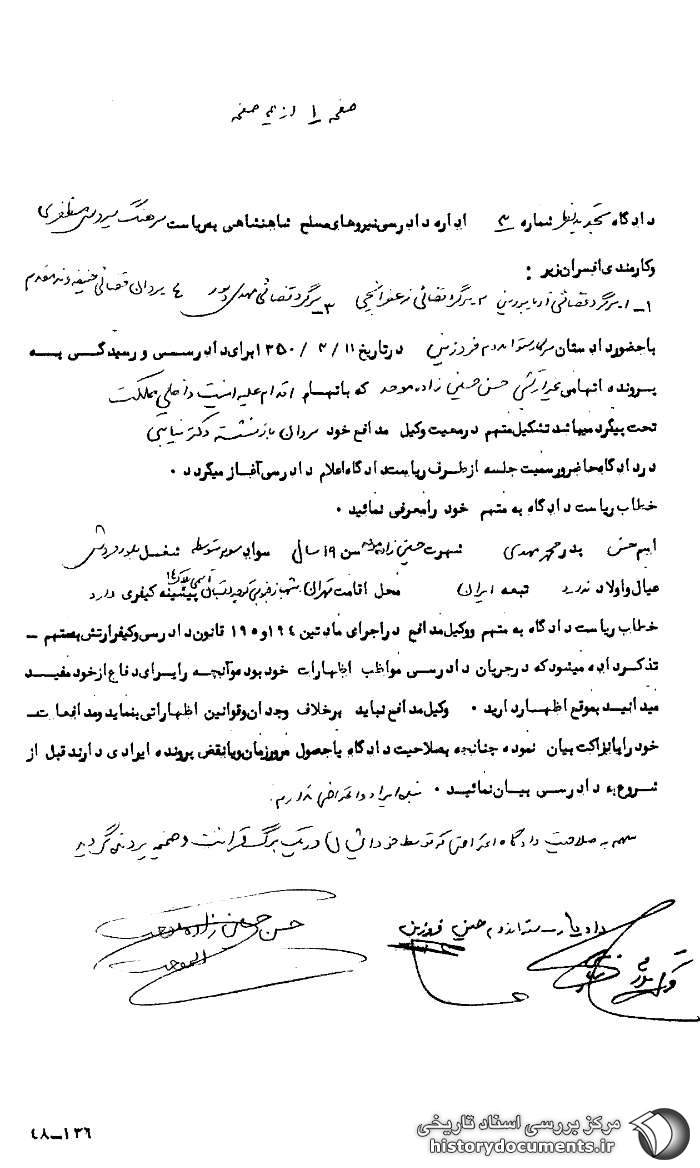 صفحه ۱ از سه صفحه
دادگاه تجدیدنظر شماره ۳ اداره دادرسی نیروهای مسلح شاهنشاهی بریاست سرهنگ مظفری
وکارمندی افسران زیر :
۱ـ سرگرد قضائی ۲ـ سرگرد قضائی زعفرانچی ۳ـ سرگرد قضائی مهدی پور ۴ـ سروان قضائی مقدم
باحضور دادستان سرکار ستواندوم فروزین درتاریخ ۱۱ / ۳ / ۱۳۵۰ برای دادرسی و رسیدگی به
پرونده اتهامی غیرارتشی حسن حسینی زاده موحد که باتهام اقدام علیه امنیت داخلی مملکت
تحت پیگرد میباشد تشکیل متهم درمعیت وکیل مدافع خود سروان بازنشسته دکتر نیابتی
در دادگاه حاضر ورسمیت جلسه از طرف ریاست دادگاه اعلام دادرسی آغاز میگردد .
خطاب ریاست دادگاه به متهم خود را معرفی نمائید .
اسم حسن پدر محمدمهدی شهرت حسینی زاده موحد سن ۱۹ سال سواد سوم متوسطه شغل بلورفروشی
عیال واولاد ندارد تبعه ایران محل اقامت تهران شهباز جنوبی پلاک ۱۴ پیشینه کیفری دارد
خطاب ریاست دادگاه به متهم ووکیل مدافع دراجرای مادتین ۱۹۴ و ۱۹۵ قانون دادرسی وکیفر ارتش بمتهم ـ
تذکر داده میشود که درجریان دادرسی مواظب اظهارات خود بوده وآنچه را برای دفاع از خود مفیـد
میدانیـد بموقع اظهـار دارید . وکیل مدافع نباید برخلاف وجدان وقوانین اظهاراتی بنماید ومدافعات ـ
خود را با نزاکت بیان نموده چنانچه بصلاحیت دادگاه یا حصول مرورزمان ویا نقض پرونده ایرادی دارند قبل از
شروع به دادرسی بیان نمائیـد . ایراد واعتراضی ندارم.
متهم به صلاحیت دادگاه اعتراض که توسط خود ایشان در یک برگ قرائت و ضمیمه پرونده گردید
دادیار ـ ستواندوم حسن فروزین
حسن حسینی زاده موحد
الموحد
وکیل
۴۸ـ۱۳۶
مرکز بررسی اسناد تاریخی
historydocuments.ir